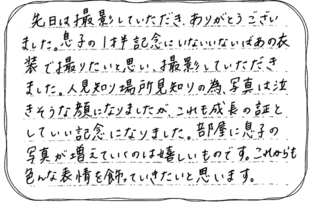 先日は撮影していただき、ありがとうござい
ました。息子の1才半記念にいないいないばあの衣
装で撮りたいと思い、撮影していただき
ました。人見知り場所見知りの為、写真は泣
きそうな顔になりましたが、これも成長の証と
していい記念になりました。部屋に息子の
写真が増えていくのは嬉しいものです。これからも
色んな表情を飾っていきたいと思います。